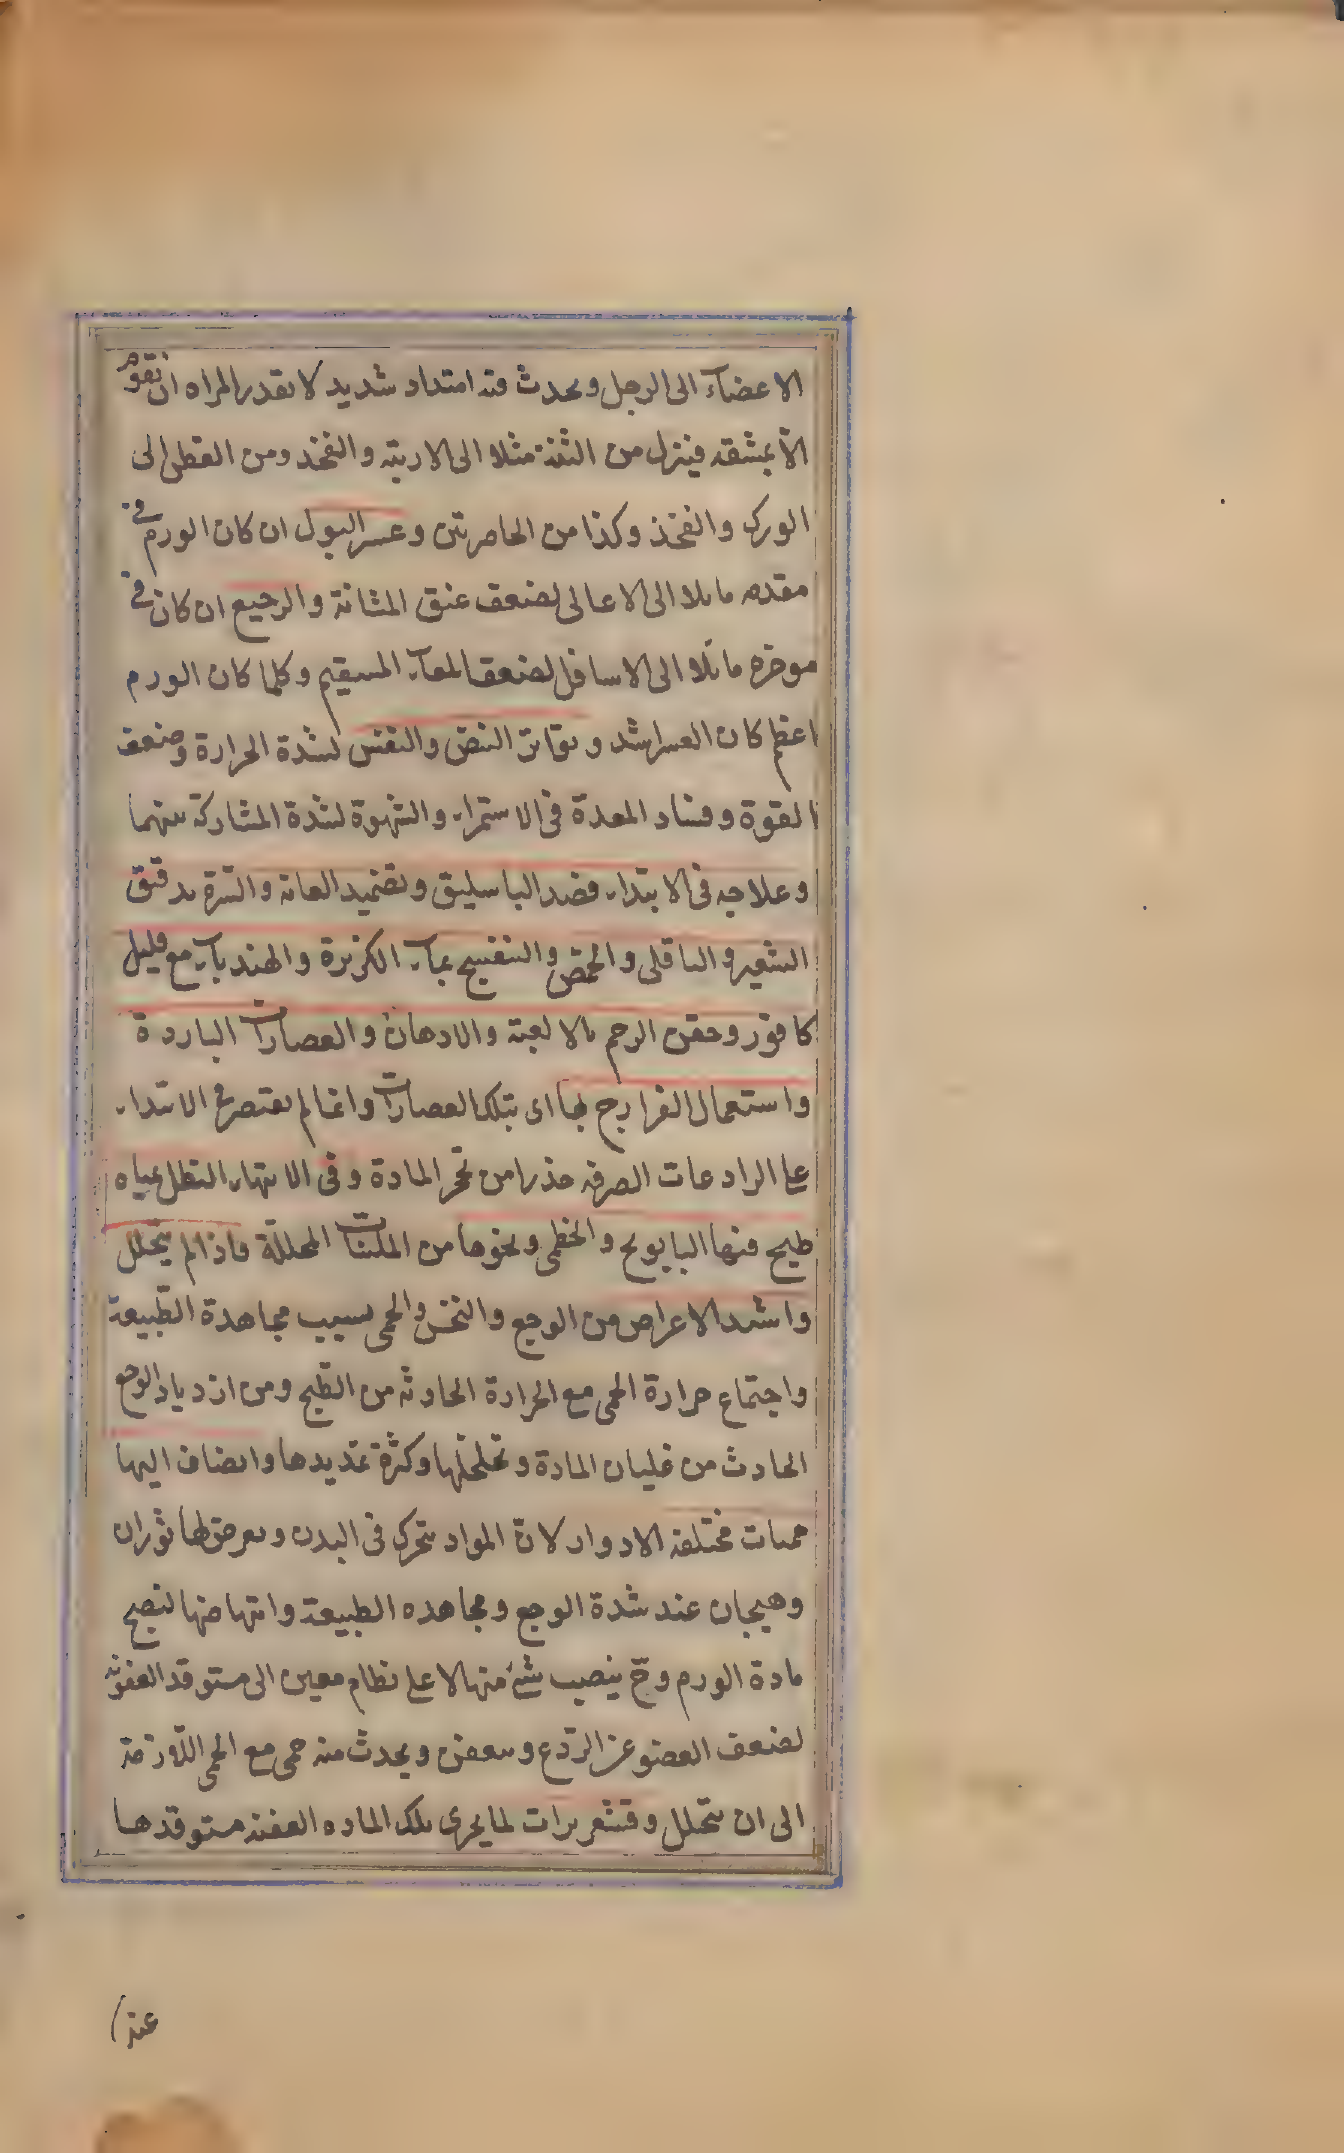 الاعضآء الى الرجل ويحدث فيه امتداد شديد لا تقدر المراه ان تقوم
الا بمشقه فينزل من الثنة مثلا الى الاربية والفخذ ومن القطن الى
الورك والفخذ وكذا من الخاصرتين وعسر البول ان كان الورم في
مقدمه مايلا الى الاعالى لضعف عنق المثانة والرجيع ان كان في
موخره مائلا الى الاسافل لضعف المعآء المستقيم وكلما كان الورم
اعظم كان العسر اشد وتواتر النبض والنفس لشدة الحرارة وضعف
القوة وفساد المعدة في الاستمراء والشهوة لشدة المشاركة بينهما
وعلاجه في الابتداء فصد الباسليق وتضميد العانه والسّرة بدقيق
الشعير والباقلى والحمّص والبنفسج بمآء الكزبرة والهندبآء مع قليل
كافور وحقن الرحم بالالعبة والادهان والعصارات الباردة
واستعمال الفرازج بها اى بتلك العصارات وانما لم يقتصر في الابتداء
على الرادعات الصرفه حذرا من تحجر المادة وفى الانتهاء التنطل بمياه
طبيخ فيها البابونج والخطمى ونحوها من الملينات المحللة فاذا لم يتحلل
واشتد الاعراض من الوجع والنخس والحمى بسبب مجاهدة الطّبيعة
واجتماع حرارة الحمى مع الحرارة الحادثه من الطّبخ ومن ازدياد الوجع
الحادث من غليان المادة وتخلخلها وكثرة تمديدها وانضاف اليها
حميات مختلفة الادوار لانّ المواد يتحرك فى البدن ويعرض لها ثوران
وهيجان عند شدة الوجع ومجاهده الطبيعة وانتهاضها لنضج
مادة الورم وح ينصب شئ منها لا على نظام معين الى مستوقد العفونة
لضعف العضو عن الردّع وتتعفن ويحدث منه حمى مع الحمى اللّازمة
الى ان يتحلل وقشعريرات لما يجرى تلك الماده العفنه مستوقدها
عند